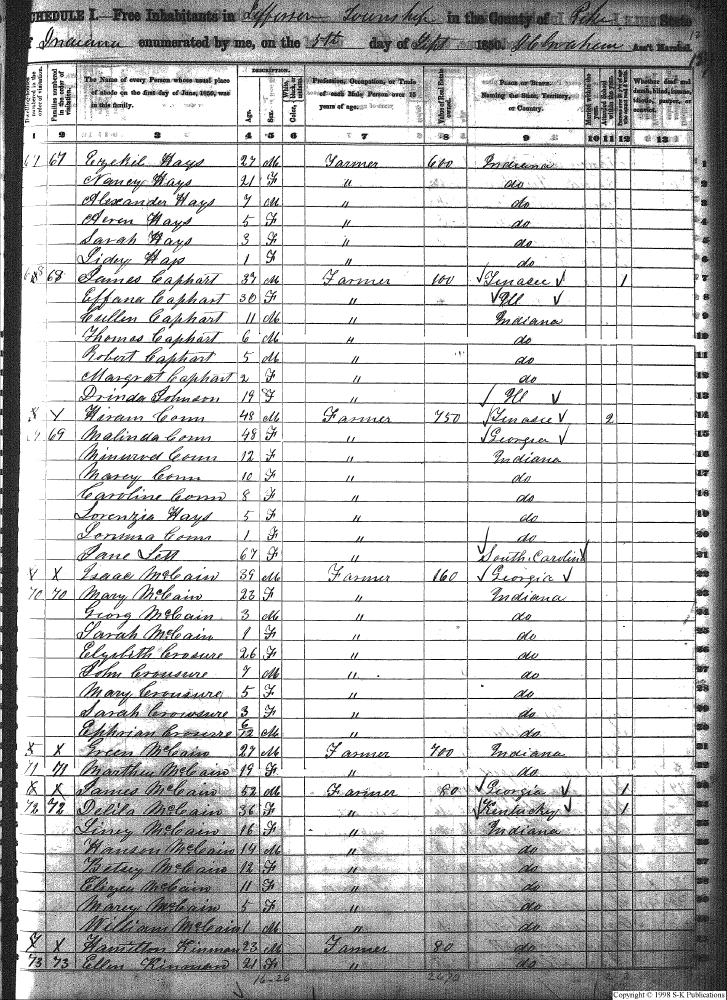 SCHEDULE I. Free Inhabitants in Jefferson Township in the County of Pike State
of Indiana enumerated by me, on the 5th day of Sept 1850. Ass't Marshal.
DESCRIPTION.
The Name of every Person whose usual place of abode on the first day of June, 1850, was in this family.
Families numbered in the order of visitation.
Age.
Sex.
Profession, Occupation, or Trade of each Male Person over 15 years of age.
Value of Real Estate owned.
Place of Birth. Naming the State, Territory, or Country.
1 2 3 4 5 6 7 8 9 10 11 12 13
67 67 Ezekil Hays 27 M Farmer 600 Indiana 1
Nancy Hays 21 F " do 2
Alexander Hays 7 M " do 3
Aeren Hays 5 F " do 4
Sarah Hays 3 F " do 5
Lidey Hays 1 F " do 6
68 68 James Caphart 37 M Farmer 100 Tenasee 1 7
Effana Caphart 30 F " Ill 8
Cullen Caphart 11 M " Indiana 9
Thomas Caphart 6 M " do 10
Robert Caphart 5 M " do 11
Margrat Caphart 2 F " do 12
Drinda Johnson 19 F " Ill 13
X X Hiram Conn 48 M Farmer 750 Tenasee 2 14
69 Malinda Conn 48 F " Georgia 15
Minurvd Conn 12 F " Indiana 16
Marey Conn 10 F " do 17
Caroline Conn 8 F " do 18
Lorenzia Hays 5 F " do 19
Conn 1 F " do 20
Jane Lett 67 F " South Carolina 21
X X Isaac McCain 39 M Farmer 160 Georgia 22
70 70 Mary McCain 23 F " Indiana 23
Georg McCain 3 M " do 24
Sarah McCain 1 F " do 25
Elyzbith Crosure 26 F " do 26
John Crousure 7 M " do 27
Mary Crousure 5 F " do 28
Sarah Crowsure 3 F " do 29
Ephrian Crosure 6/12 M " do 30
X X Green McCain 27 M Farmer 700 Indiana 31
71 71 Marthey McCain 19 F " do 32
X X James McCain 52 M Farmer 80 Georgia 1 33
72 72 Delila McCain 36 F " Kentucky 1 34
Liney McCain 16 F " Indiana 35
Hanson McCain 14 M " do 36
Betsey McCain 12 F " do 37
Elizea McCain 11 F " do 38
Marey McCain 5 F " do 39
William McCain 1 M " do 40
X X Hamilton Kinman 23 M Farmer 80 do 41
73 73 Ellen Kinman 21 F " do 42
16-26
Copyright © 1998 S-K Publications